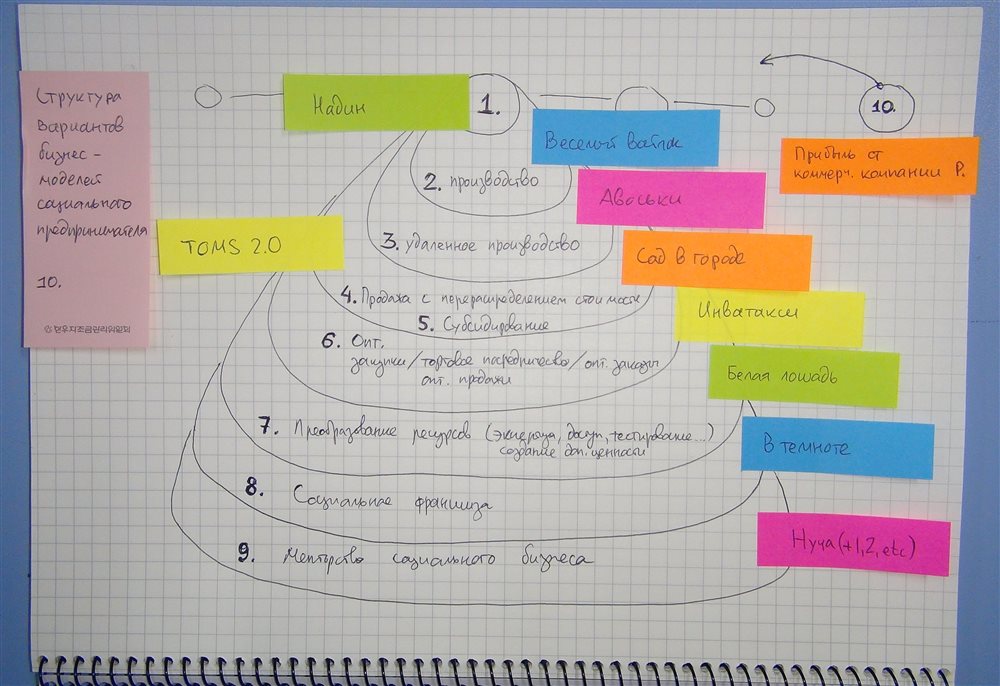 Структура
вариантов
бизнес -
моделей
социального
предпринимателя
10.
Надин
1.
10.
Веселый войлок
Прибыль от
коммерч. компании Р.
2. производство
Авоськи
TOMS 2.0
3. удаленное производство
Сад в городе
4. Продажа с перераспределением стоимости
5. Субсидирование
Инватакси
6. Опт.
закупки/торговое посредничество/опт. заказы
опт. продажи
Белая лошадь
7. Преобразование ресурсов (экспертиза, досуг, тестирование...)
создание доп. ценности
В темноте
8. Социальная франшиза
Нуча (+1, 2, etc)
9. Менторство социального бизнеса